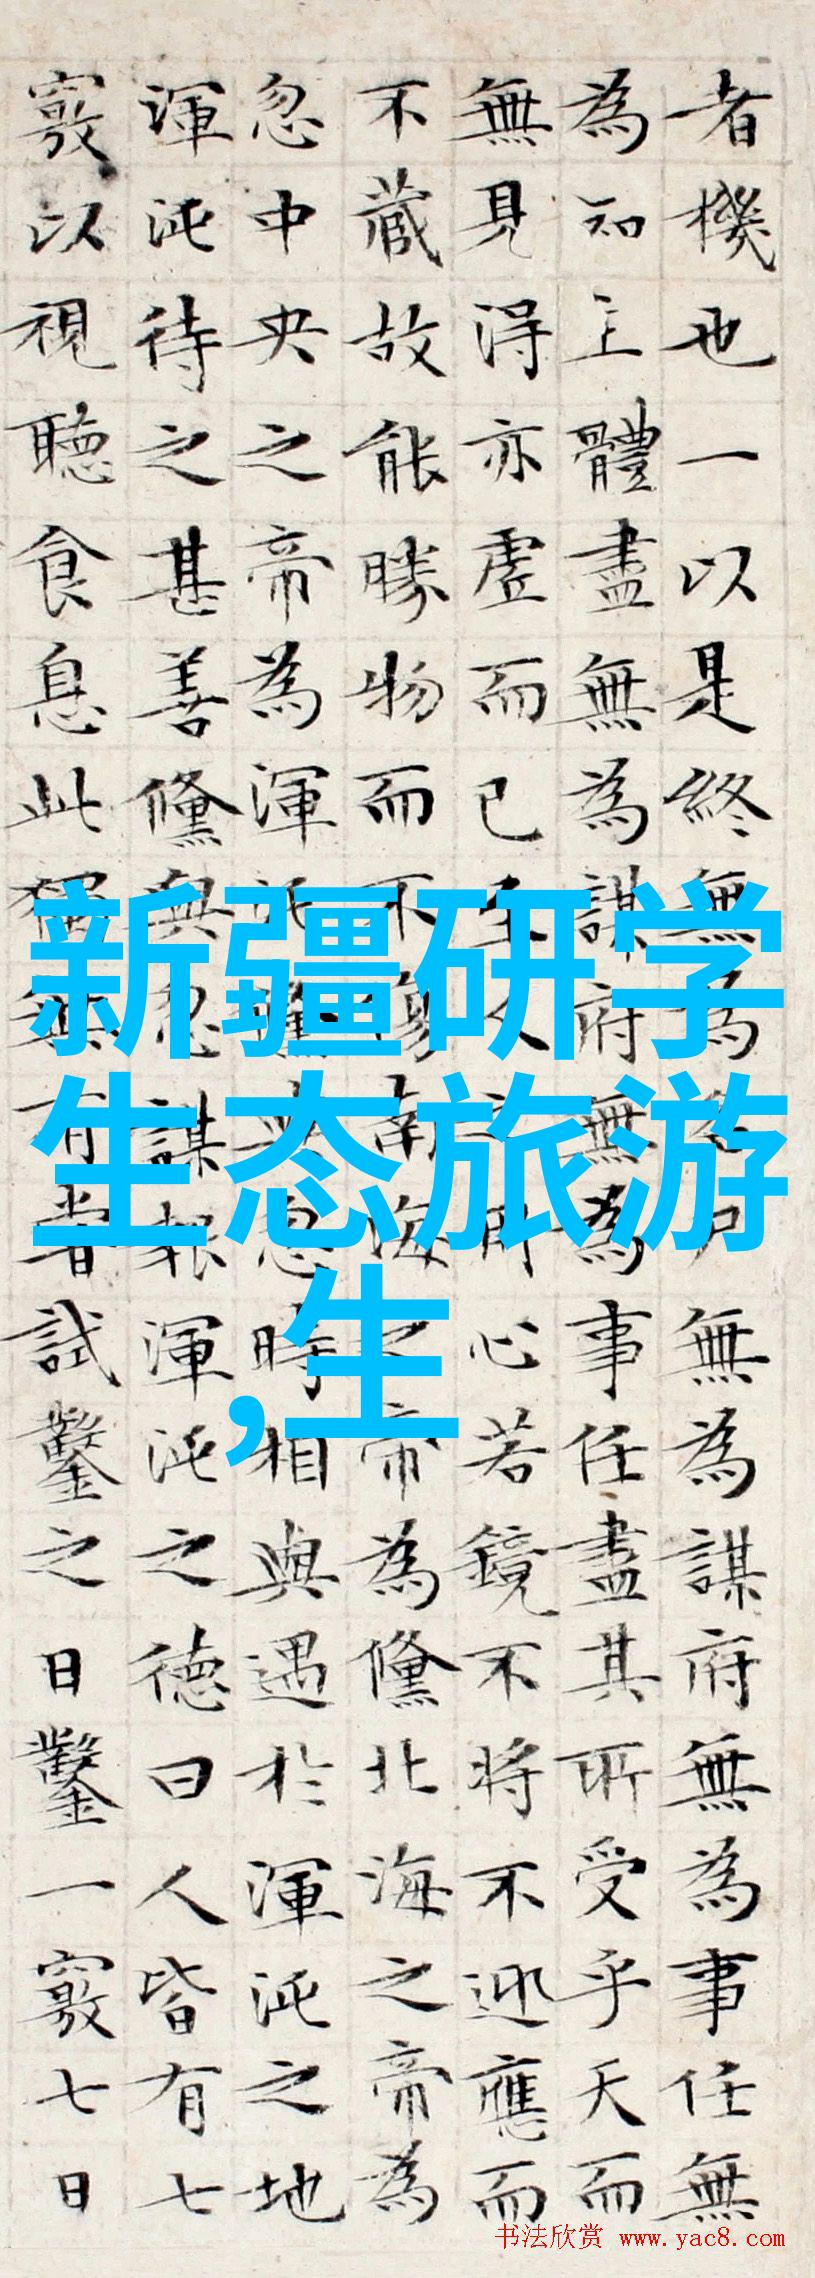 者機也一以是終無為名尸無為謀府無為事任無
為知主體盡無為謀府無為事任盡其所受乎天而
無見得亦虛而已至人之用心若鏡不將不迎應而
不藏故能勝物而不傷南海之帝為儵北海之帝為
忽中央之帝為渾沌儵與忽時相與遇於渾沌之地
渾沌待之甚善儵與忽謀報渾沌之德曰人皆有七
竅以視聽食息此獨無有嘗試鑿之日鑿一竅七日
新疆研学
生态旅游
,生
书法欣赏 www.yac8.com